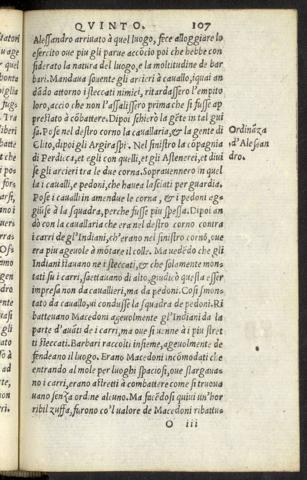 QVINTO. 107
Alessandro arriuato à quel luogo, fece alloggiare lo
esercito oue piu gli parue accōcio poi che hebbe con
siderato la natura del luogo, e la moltitudine de bar
bari. Mandaua souente gli arcieri à cauallo, iquai an
dādo attorno i steccati nimici, ritardassero l'empito
loro, accio che non l'assalissero prima che si fusse ap
prestato à cōbattere. Dipoi schierò la gēte in tal gui
sa. Pose nel destro corno la cauallaria, & la gente di
Clito, dipoi gli Argiraspi. Nel sinistro la cōpagnia
di Perdicca, et egli con quelli, et gli Astenerei, et diui
se gli arcieri tra le due corna. Soprauennero in quel
la i caualli, e pedoni, che haueua lasciati per guardia.
Pose i caualli in amendue le corna, & i pedoni ag-
giūse à la squadra, perche fusse piu spessa. Dipoi an
dò con la cauallaria che era nel destro corno contra
i carri de gl'Indiani, ch'erano nel sinistro cornò, oue
era piu ageuole à mōtare il colle. Ma uedēdo che gli
Indiani stauano ne i steccati, & che solamente mon-
tati su i carri, saettauano di alto, giudicò questa esser
impresa non da cauallieri, ma da pedoni. Cosi smon
tato da cauallo, ui condusse la squadra de pedoni. Ri
batteuano Macedoni ageuolmente gl'Indiani da la
parte d'auāti de i carri, ma oue si uenne à i piu stret
ti steccati. Barbari raccolti insieme, ageuolmente de
fendeano il luogo. Erano Macedoni incōmodati che
entrando al mole per luoghi spaciosi, oue slargaua-
no i carri, erano astretti à combattere come si truoua
uano senza ordine alcuno. Ma facēdosi quiui un'hor
ribil zuffa, furono co'l ualore de Macedoni ribattu-
O iii
Ordināza
d'Alessan
dro.